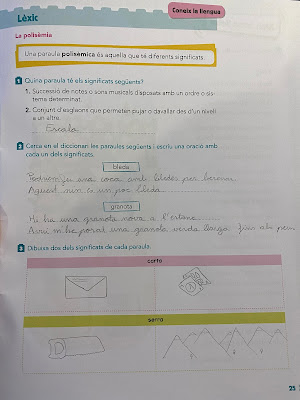 Coneix la llengua
Lèxic
La polisèmia
Una paraula polisèmica és aquella que té diferents significats.
1 Quina paraula té els significats següents?
1. Successió de notes o sons musicals disposats amb un ordre o sis-
tema determinat.
2. Conjunt d'esglaons que permeten pujar o davallar des d'un nivell
a un altre.
Escala
2 Cerca en el diccionari les paraules següents i escriu una oració amb
cada un dels significats.
bleda
una coca amb bledes per berenar.
Aquest nin és un poc bleda
granota
Hi ha una granota nova a l'estany
Avui m'he posat una granota verda llarga fins als peus
3 Dibuixa dos dels significats de cada paraula.
carta
serra
25